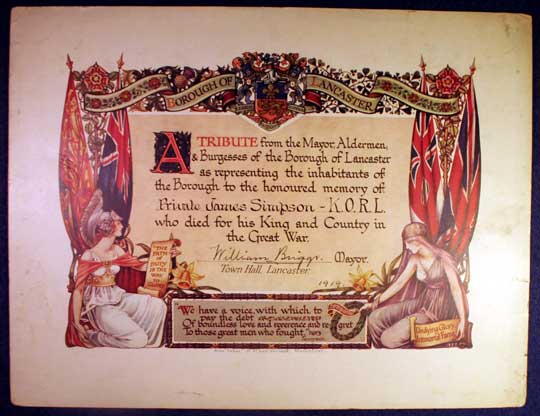 BOROUGH OF LANCASTER
A TRIBUTE from the Mayor, Aldermen,
& Burgesses of the Borough of Lancaster
as representing the inhabitants of
the Borough to the honoured memory of
Private James Simpson - K.O.R.L.
who died for his King and Country in
the Great War.
William Briggs Mayor.
Town Hall, Lancaster.
1919
"THE PATH OF DUTY IS THE WAY TO
"We have a voice, with which to
pay the debt
Of boundless love and reverence and regret
To those great men who fought,"
Undying Glory
Immortal Fame